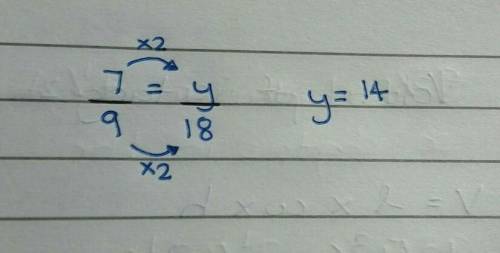 ×2
7/9 = y/18 y = 14
×2